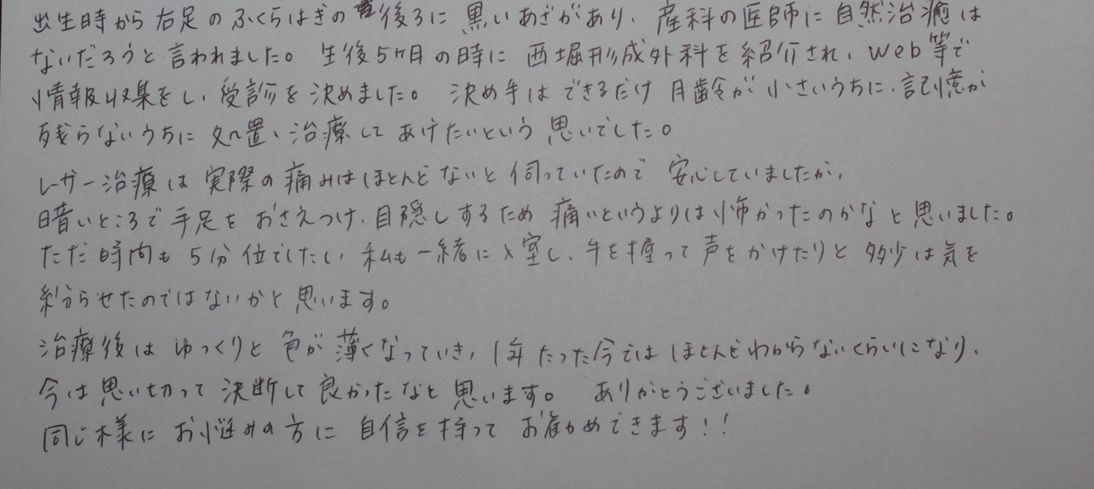 出生時から右足のふくらはぎの後ろに黒いあざがあり、産科の医師に自然治癒は
ないだろうと言われました。生後5ヶ月の時に西堀形成外科を紹介され、web等で
情報収集をし、受診を決めました。決め手はできるだけ月齢が小さいうちに、記憶が
残らないうちに処置、治療してあげたいという思いでした。
レーザー治療は実際の痛みはほとんどないと伺っていたので安心していましたが、
暗いところで手足をおさえつけ、目隠しするため痛いというよりは怖かったのかなと思いました。
ただ時間も5分位でしたし、私も一緒に入室し、手を握って声をかけたりと多少は気を
紛らせたのではないかと思います。
治療後はゆっくりと色が薄くなっていき、1年たった今ではほとんどわからないくらいになり、
今は思い切って決断して良かったなと思います。ありがとうございました。
同じ様にお悩みの方に自信を持ってお勧めできます!!